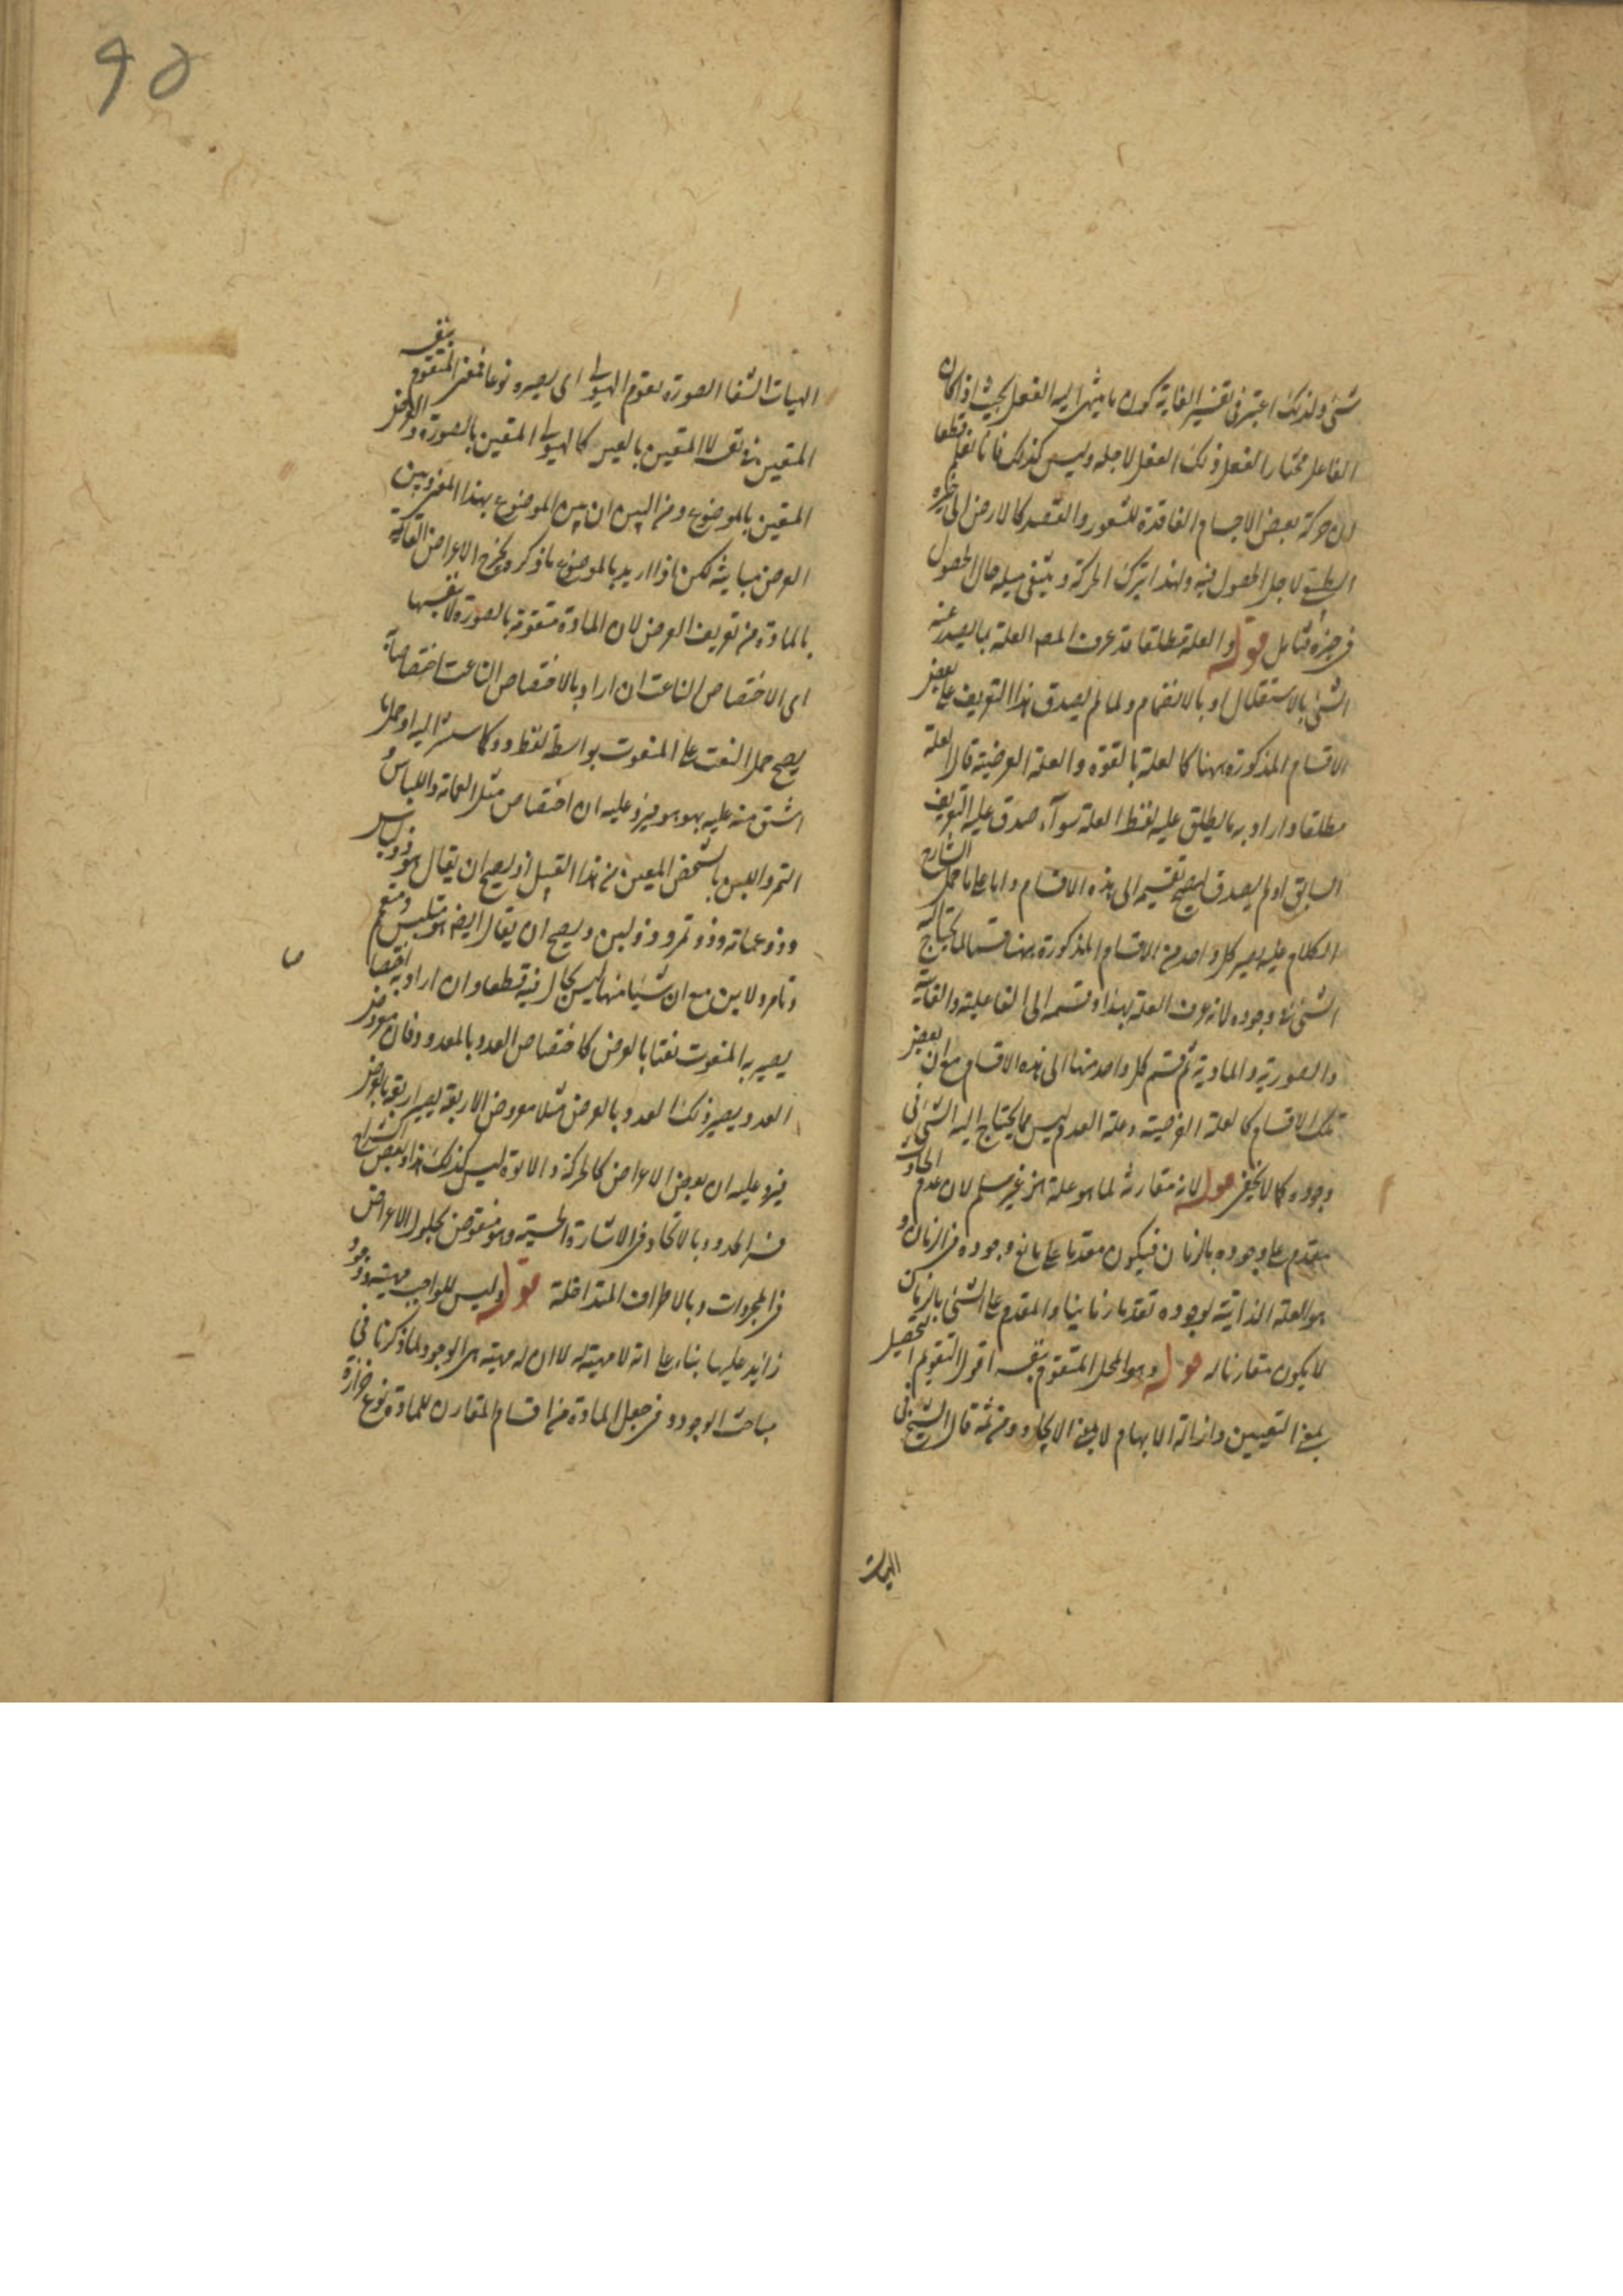 شئ ولذلك اعتبر فى تفسير الغاية كون ما ينتهى اليه الفعل بحيث اذا كان
الفاعل مختارا لفعل ذلك الفعل لاجله وليس كذلك فانا نعلم قطعا
ان حركة بعض الاجسام الفاقدة للشعور والقصد كالارض الى حيزه
الطبيعى لاجل الحصول فيه ولهذا يترك الحركة وينتفى ميله حال الحصول
فى حيزه فتامل قوله والعلة مطلقا قد عرف المص العلة بما يصدر عنه
الشئ بالاستقلال او بالانضمام ولما لم يصدق هذا التعريف على بعض
الاقسام المذكورة ههنا كالعلة بالقوة والعلة العرضية قال العلة
مطلقا واراد به ما يطلق عليه لفظ العلة سوآء صدق عليه التعريف
السابق او لم يصدق ليصح تقسيمه الى هذه الاقسام واما على ما حمل الشارح
الكلام عليه يصير كل واحد من الاقسام المذكورة ههنا قسما لما يحتاج اليه
الشئ فى وجوده لانه عرف العلة بهذا وقسمه الى الفاعلية والغاية
والصورية والمادية ثم قسم كل واحد منها الى هذه الاقسام مع ان بعض
تلك الاقسام كالعلة العرضية وعلة العدم ليس مما يحتاج اليه الشئ فى
وجوده كما لا يخفى قوله لانه مقارنة لما هو علة الخ غير مسلم لان عدم الحادث
مقدم على وجوده بالزمان فيكون مقدما على مانع وجوده فى الزمان و
هو العلة الذاتية لوجوده تقدما زمانيا والمقدم على الشئ بالزمان
لا يكون مقارنا له قوله وهو المحل المتقوم بنفسه اقول التقويم التحصيل
بمعنى التعيين وازالة الابهام لا بمعنى الايجاد ومن ثمة قال الشيخ فى
الهيات
الهيات الشفا الصورة تقوم الهيولى اى يصيره نوعا فمعنى المتقوم بنفسه
المتعين بذاته لا المتعين بالغير كالهيولى المتعين بالصورة والعرض
المتعين بالموضوع ومن البين ان بين الموضوع بهذا المعنى وبين
العرض مباينة لكن اذا اريد بالموضوع ما ذكره يخرج الاعراض القائمة
بالمادة من تعريف العرض لان المادة متقومة بالصورة لا بنفسها
اى الاختصاص الناعت ان اراد بالاختصاص الناعت اختصاصا
يصح حمل النعت على المنعوت بواسطة لفظ ذو كما سيشير اليه او حمل ما
اشتق منه عليه بهو هو فيرد عليه ان اختصاص مثل العمامة واللباس و
التمر واللبن بالشخص المعين من هذا القبيل اذ يصح ان يقال هو ذو لباس
وذو عمامة وذو تمر وذو لبن ويصح ان يقال ايض هو متلبس ومتعمم
وتامر ولابن مع ان شيئا منها ليس بحال فيه قطعا وان اراد به اختصاصا
يصير به المنعوت نعتا بالعرض كاختصاص العدد بالمعدود فان معروض
العدد يصير ذلك العدد بالعرض مثلا معروض الاربعة يصير اربعة بالعرض
فيرد عليه ان بعض الاعراض كالحركة والابوة ليس كذلك هذا وبعض الشراح
فسر الحدود بالاتحاد فى الاشارة الحسية وهو منقوض بحلول الاعراض
فى المجردات وبالاطراف المتداخلة قوله وليس للواجب مهية ووجود
زائد عليها بناء على انه لا مهية له لا ان له مهية هى الوجود لما ذكرنا فى
مباحث الوجود وفى جعل المادة من اقسام المقارن للمادة نوع حزازة